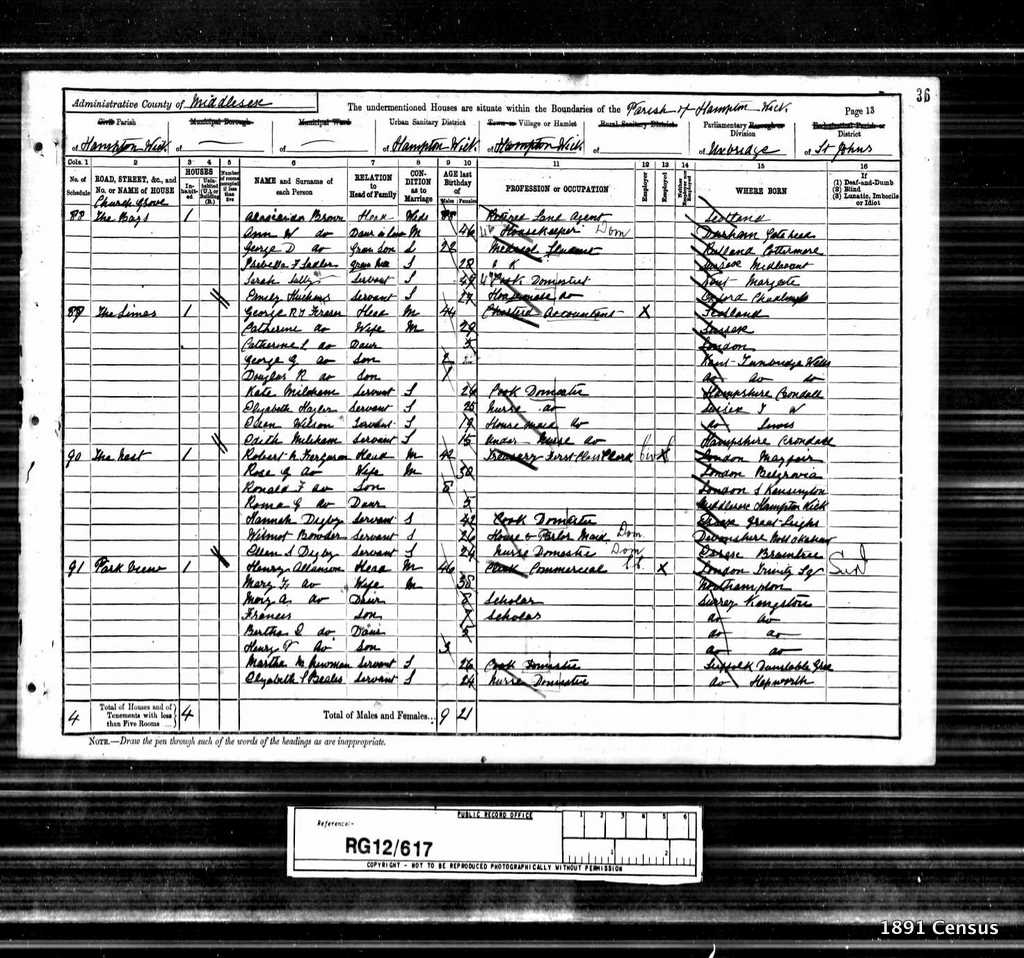 36
Administrative County of Middlesex
The undermentioned Houses are situate within the Boundaries of the Parish of Hampton Wick
Page 13
Civil Parish of Hampton Wick
Municipal Borough of
Municipal Ward of
Urban Sanitary District of Hampton Wick
Town or Village or Hamlet of Hampton Wick
Rural Sanitary District of
Parliamentary Borough or Division of Uxbridge
Ecclesiastical Parish or District of St Johns
Cols. 1 2 3 4 5 6 7 8 9 10 11 12 13 14 15 16
No. of Schedule
ROAD, STREET, &c., and No. or NAME of HOUSE
HOUSES
Inhabited
Uninhabited (U.), or Building (B.)
Number of rooms occupied if less than five
NAME and Surname of each Person
RELATION to Head of Family
CONDITION as to Marriage
AGE last Birthday of
Males
Females
PROFESSION or OCCUPATION
Employer
Employed
WHERE BORN
If (1) Deaf-and-Dumb (2) Blind (3) Lunatic, Imbecile or Idiot
Church Grove
88 The Bays 1 Brown Head 88 Retired Land Agent Scotland
Ann W do 46 Housekeeper Dom Durham Gateshead
George D do Grand Son S 22 Medical Student Rutland Cottesmore
F Sadler S 28 Sussex
Sarah Servant S 49 Cook Domestic Kent Margate
Emily Servant S 27 Housemaid do Oxford
89 The Limes 1 George Head M 44 Charted Accountant X Scotland
Catherine do Wife M 29 Sussex
Catherine do Daur London
George G do Son 2 Kent Tunbridge Wells
Douglas R do Son 1 do do do
Kate Servant S 26 Cook Domestic Hampshire Crondall
Elizabeth Servant S 25 Nurse do Sussex T W
Ellen Wilson Servant S 19 House maid do do Lewes
Edith Servant S 15 Under Nurse do Hampshire Crondall
90 The Nest 1 Robert Ferguson Head M 42 Treasury First Class Clerk X London Mayfair
Rose G do Wife M 30 London Belgravia
Ronald F do Son 8 London S Kensington
Roma G do Daur 5 Middlesex Hampton Wick
Hannah Digby Servant S 42 Cook Domestic Essex Great Leighs
Wilmot Bowder Servant S 26 House & Parlor Maid Dom Devonshire
Ellen S Digby Servant S 24 Nurse Domestic Dom Braintree
91 Park View 1 Henry Allanson Head M 46 Clerk Commercial X London Trinity Sq
Mary F. do Wife M 38 Northampton
Mary A. do Daur 8 Scholar Surrey Kingston
Francis Son Scholar do do
Bertha do Daur 5 do do
Henry do Son 3 do do
Martha M Newman Servant S 26 Cook Domestic Suffolk
Elizabeth S Beales Servant S 24 Nurse Domestic do Hepworth
4 Total of Houses and of Tenements with less than Five Rooms 4 Total of Males and Females... 9 21
NOTE.—Draw the pen through such of the words of the headings as are inappropriate.
PUBLIC RECORD OFFICE
Reference:-
RG12/617
1 2 3 4 5 6
1 2
COPYRIGHT - NOT TO BE REPRODUCED PHOTOGRAPHICALLY WITHOUT PERMISSION
1891 Census